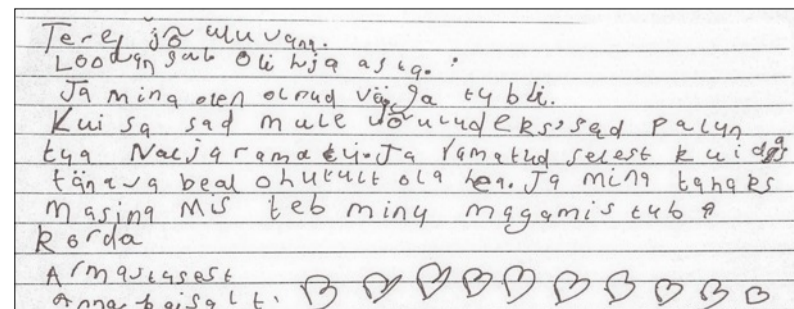 Terej jõuluvana.
Loodan sul oli hja asta.
Ja mina olen olnud väga tubli.
Kui sa sad mule jõulud eks, sad palun
tua Nalja ramatu. Ja ramatud selest kuidas
tänava beal ohutult ola hea. Ja mina tahaks
masina Mis teb minu magamis tuba
korda
Armastusest